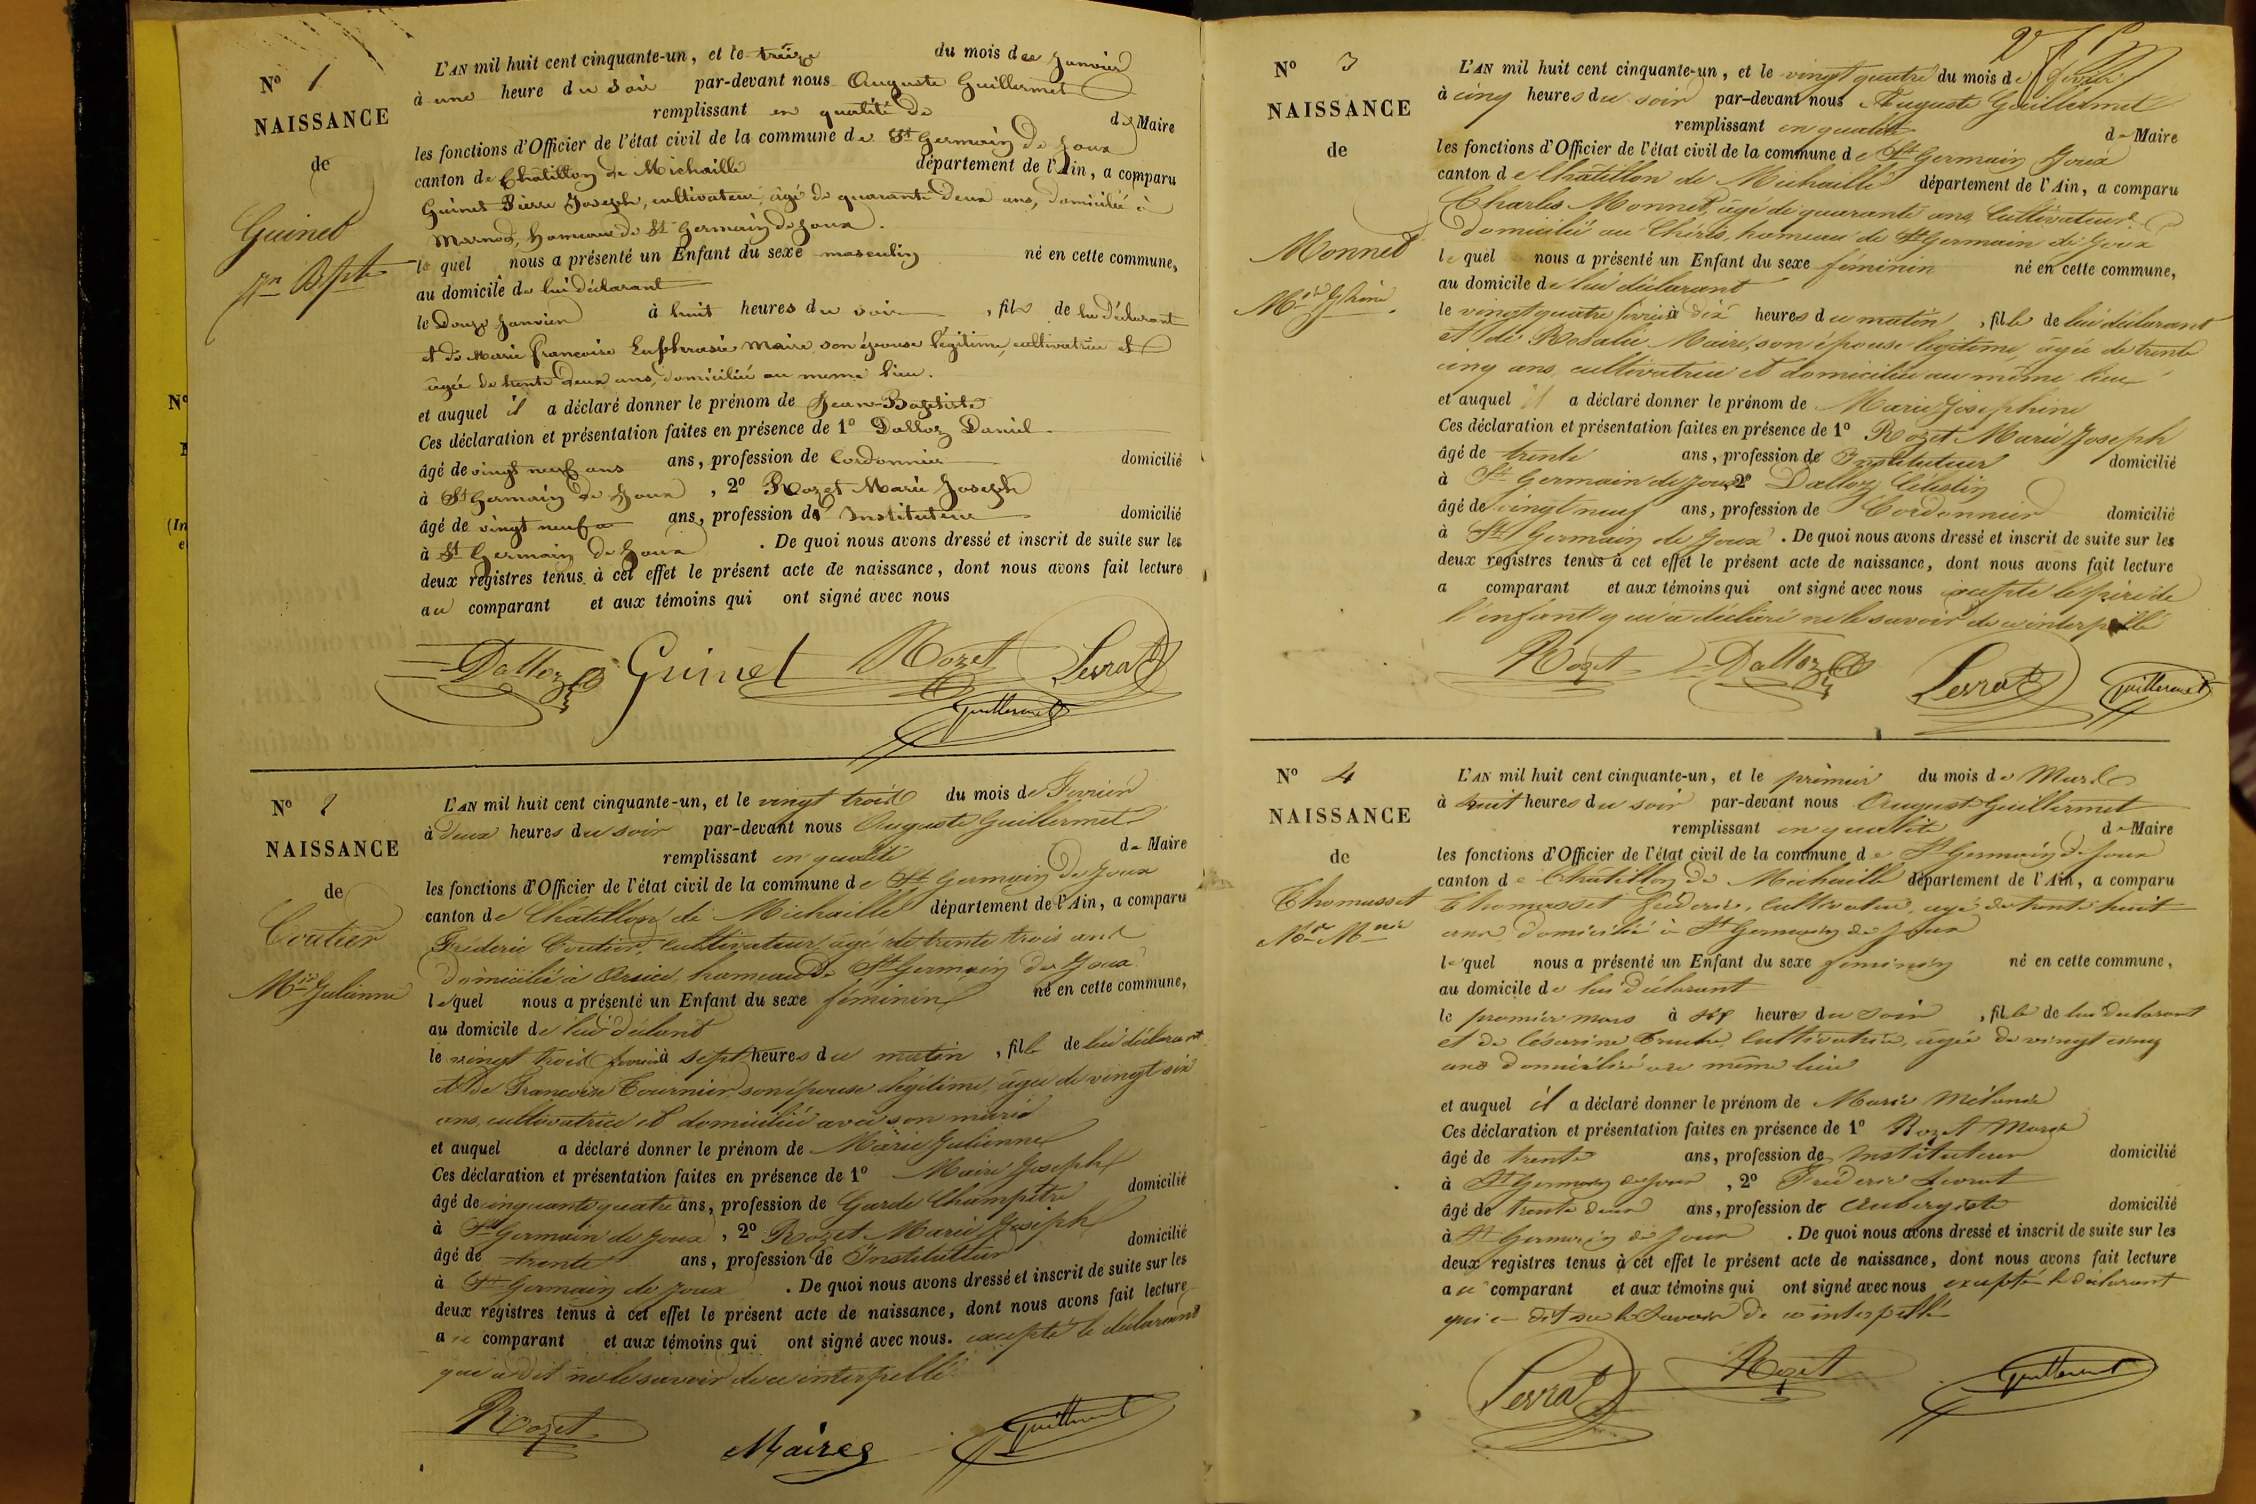 N° 1
NAISSANCE
de
Guinet
Jn Bpte
L'AN mil huit cent cinquante-un, et le treize du mois de Janvier
à une heure du soir par-devant nous Auguste Guillermet
remplissant en qualité de de Maire
les fonctions d'Officier de l'état civil de la commune de St Germain de Joux
canton de Châtillon de Michaille département de l'Ain, a comparu
Guinet Pierre Joseph, cultivateur, âgé de quarante deux ans, domicilié à
Marnod, hameau de St Germain de Joux.
le quel nous a présenté un Enfant du sexe masculin né en cette commune,
au domicile de lui déclarant
le Douze Janvier à huit heures du soir, fils de lui déclarant
et de Marie françoise Euphrasie Maire son épouse légitime, cultivatrice et
âgée de trente deux ans, domiciliée au même lieu.
et auquel il a déclaré donner le prénom de Jean-Baptiste
Ces déclaration et présentation faites en présence de 1° Dalloz Daniel
âgé de vingt neuf ans ans, profession de Cordonnier domicilié
à St Germain de Joux, 2° Rozet Marie Joseph
âgé de vingt neuf ans, profession de Instituteur domicilié
à St Germain de Joux. De quoi nous avons dressé et inscrit de suite sur les
deux registres tenus à cet effet le présent acte de naissance, dont nous avons fait lecture
au comparant et aux témoins qui ont signé avec nous
Dalloz Guinet Rozet Levrat
Guillermet
N° 2
NAISSANCE
de
Coutier
Mie Julienne
L'AN mil huit cent cinquante-un, et le vingt trois du mois de Fevrier
à deux heures du soir par-devant nous Auguste Guillermet
remplissant en qualité de Maire
les fonctions d'Officier de l'état civil de la commune de St Germain de Joux
canton de Châtillon de Michaille département de l'Ain, a comparu
Fréderic Coutier, cultivateur, âgé de trente trois ans
domicilié à hameau de St Germain de Joux
le quel nous a présenté un Enfant du sexe féminin né en cette commune,
au domicile de lui déclant
le vingt trois fevrier à sept heures du matin, fille de lui déclarant
et de Francoise Tournier son épouse légitime, âgée de vingt six
ans, cultivatrice et domiciliée avec son mari
et auquel a déclaré donner le prénom de Marie Julienne
Ces déclaration et présentation faites en présence de 1° Maire Joseph
âgé de cinquante quatre ans, profession de Garde Champêtre domicilié
à St Germain de Joux, 2° Rozet Marie Joseph
âgé de trente ans, profession de Instituteur domicilié
à St Germain de Joux. De quoi nous avons dressé et inscrit de suite sur les
deux registres tenus à cet effet le présent acte de naissance, dont nous avons fait lecture
au comparant et aux témoins qui ont signé avec nous. excepté le déclarant
qui a dit ne le savoir de ce interpellé
Rozet Maire Guillermet
N° 3
NAISSANCE
de
Monnet
Mie Jphine
L'AN mil huit cent cinquante-un, et le vingt quatre du mois de fevrier
à cinq heures du soir par-devant nous Auguste Guillermet
remplissant en qualité de Maire
les fonctions d'Officier de l'état civil de la commune de St Germain Joux
canton de Châtillon de Michaille département de l'Ain, a comparu
Charles Monnet, âgé de quarante ans Cultivateur
domicilié au hameau de St Germain de Joux
le quel nous a présenté un Enfant du sexe féminin né en cette commune,
au domicile de lui déclarant
le vingt quatre fevrier à dix heures du matin, fille de lui déclarant
et de Rosalie Maire, son épouse légitime, âgée de trente
cinq ans, cultivatrice et domiciliée au même lieu
et auquel il a déclaré donner le prénom de Marie Josephine
Ces déclaration et présentation faites en présence de 1° Rozet Marie Joseph
âgé de trente ans, profession de Instituteur domicilié
à St Germain de Joux, 2° Dalloz Célestin
âgé de vingt neuf ans, profession de Cordonnier domicilié
à St Germain de Joux. De quoi nous avons dressé et inscrit de suite sur les
deux registres tenus à cet effet le présent acte de naissance, dont nous avons fait lecture
a comparant et aux témoins qui ont signé avec nous excepté le père de
l'enfant qui a déclaré ne le savoir de ce interpellé
Rozet Dalloz Levrat Guillermet
N° 4
NAISSANCE
de
Thomasset
L'AN mil huit cent cinquante-un, et le premier du mois de Mars
à huit heures du soir par-devant nous August Guillermet
remplissant en qualité de Maire
les fonctions d'Officier de l'état civil de la commune de St Germain de Joux
canton de Chatillon de Michaille département de l'Ain, a comparu
Thomasset fréderic, Cultivateur, agé de trente huit
ans domicilié à St Germain de Joux
le quel nous a présenté un Enfant du sexe feminin né en cette commune,
au domicile de lui déclarant
le premier mars à six heures du soir, fille de lui declarant
et de Césarine cultivatrice, agée de vingt cinq
ans domiciliée au même lieu
et auquel il a déclaré donner le prénom de Marie Mélanie
Ces déclaration et présentation faites en présence de 1° Rozet Marie
âgé de trente ans, profession de Instituteur domicilié
à St Germain de Joux, 2° Fréderic Levrat
âgé de trente deux ans, profession de Aubergiste domicilié
à St Germain de Joux. De quoi nous avons dressé et inscrit de suite sur les
deux registres tenus à cet effet le présent acte de naissance, dont nous avons fait lecture
au comparant et aux témoins qui ont signé avec nous excepté le déclarant
qui a dit ne le Savoir de ce interpellé
Levrat Rozet Guillermet